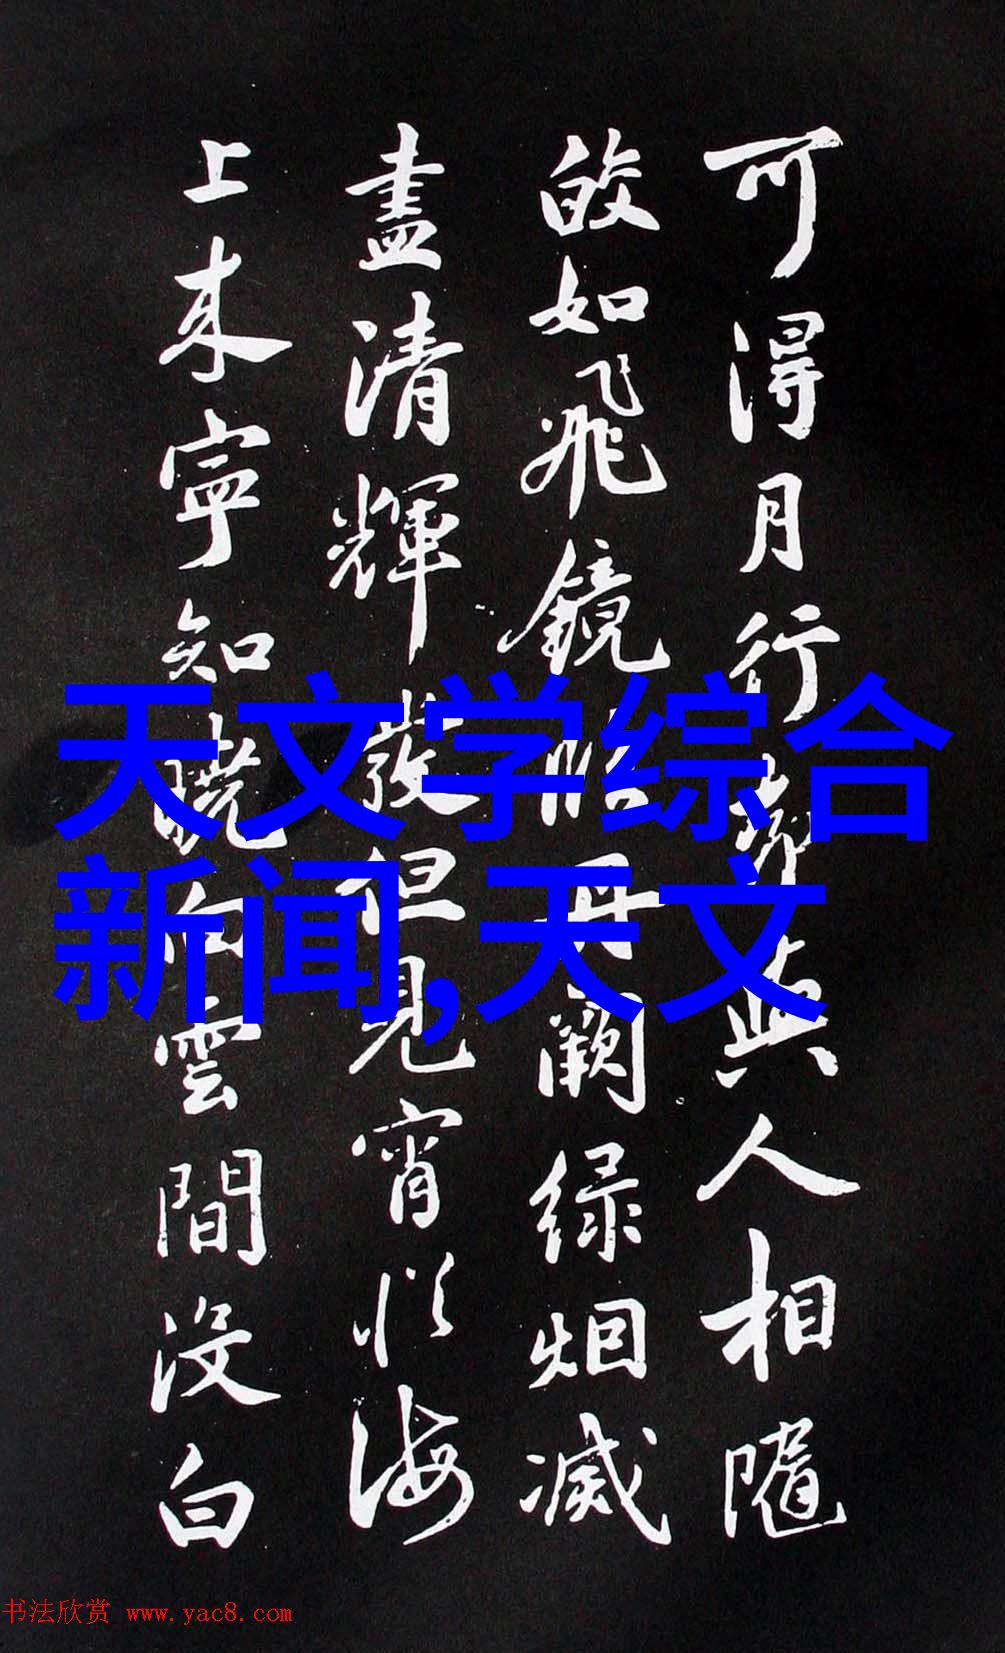 可得月行却與人相隨
皎如飛鏡臨丹闕绿烟滅
盡清輝發但見宵從海
上来寧知曉向雲間沒白
天文学综合
新闻,天文
书法欣赏 www.yac8.com